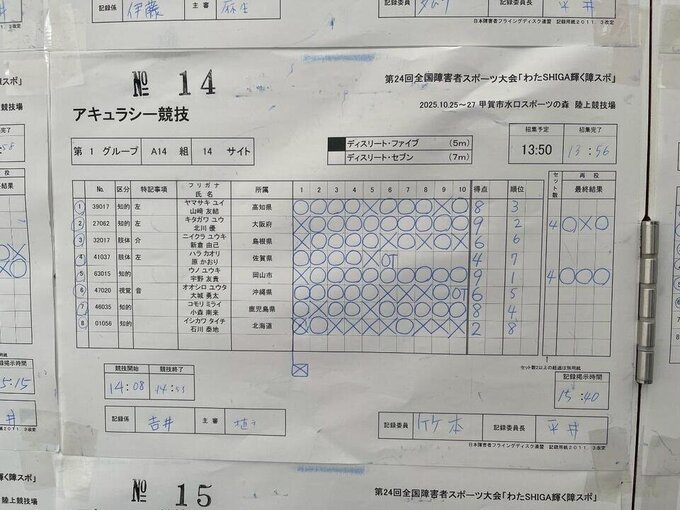 記録係 伊藤 主審 麻生
記録委員長 平井
日本障害者フライングディスク連盟 記録用紙2011 3改定
№ 14
第24回全国障害者スポーツ大会「わたSHIGA輝く障スポ」
アキュラシー競技
2025.10.25~27 甲賀市水口スポーツの森 陸上競技場
第 1 グループ A14 組 14 サイト
ディスリート・ファイブ (5m)
ディスリート・セブン (7m)
招集予定 招集完了
13:50 13:56
No. 区分 特記事項 フリガナ 氏名 所属 1 2 3 4 5 6 7 8 9 10 得点 順位 セット数 再投 最終結果
1 39017 知的 左 ヤマサキ ユイ 山崎 友結 高知県 8 3
2 27062 知的 左 キタガワ ユウ 北川 優 大阪府 9 2 4 ○×○
3 32017 肢体 介 ニイクラ ユウキ 新倉 由己 島根県 6 6
4 41037 肢体 左 ハラ カオリ 原 かおり 佐賀県 OT 4 7
5 63015 知的 ウノ ユウキ 宇野 友貴 岡山市 9 1 4 ○○○
6 47020 視覚 音 オオシロ ユウタ 大城 勇太 沖縄県 OT 6 5
7 46035 知的 コモリ ミライ 小森 南来 鹿児島県 8 4
8 01056 知的 イシカワ タイチ 石川 泰地 北海道 2 8
セット数2以上の経過は別用紙
競技開始 競技終了
14:08 14:53
記録掲示時間
15:40
記録係 吉井 主審
記録委員 竹本 記録委員長 平井
日本障害者フライングディスク連盟 記録用紙2011 3改定
№ 15
第24回全国障害者スポーツ大会「わたSHIGA輝く障スポ」